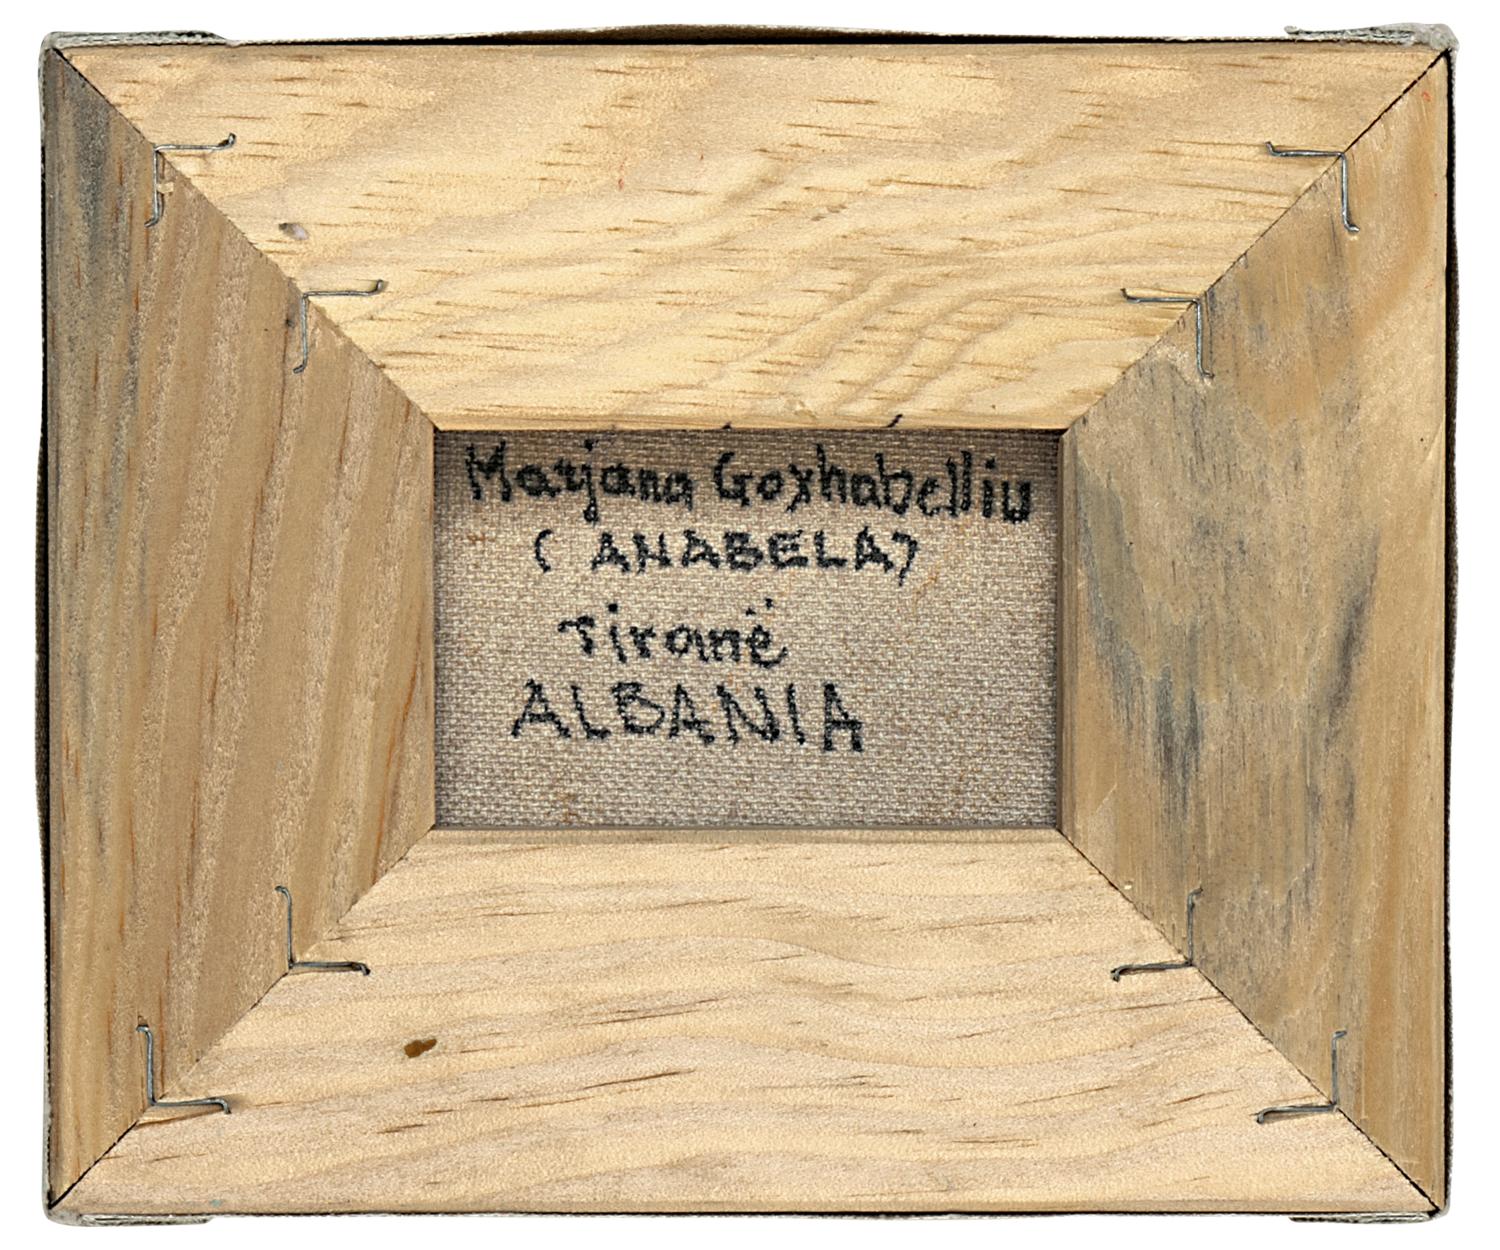 Marjana Goxhabelliu
(ANABELA)
Tiranë
ALBANIA